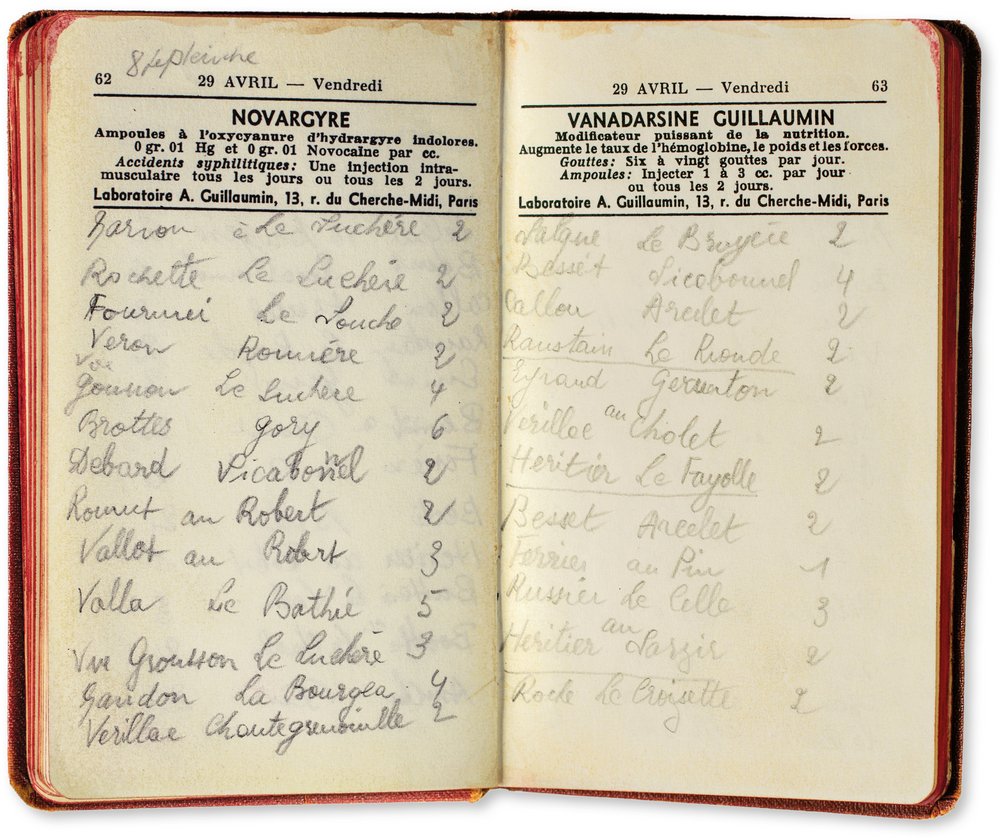 62 8 septembre
29 AVRIL — Vendredi
NOVARGYRE
Ampoules à l'oxycyanure d'hydrargyre indolores.
0 gr. 01 Hg et 0 gr. 01 Novocaïne par cc.
Accidents syphilitiques: Une injection intra-
musculaire tous les jours ou tous les 2 jours.
Laboratoire A. Guillaumin, 13, r. du Cherche-Midi, Paris
à Le Luchère 2
Rochette Le Luchère 2
Le Souche 2
Veron Romière 2
Vve
Le Luchère 4
Brottes Gory 6
Debard Picabonnel 2
au Robert 2
Vallot au Robert 3
Valla Le Bathie 5
Vve Grousson Le Luchère 3
Gandon La Bourgea 4
Verillac Chantegrenouille 2
29 AVRIL — Vendredi 63
VANADARSINE GUILLAUMIN
Modificateur puissant de la nutrition.
Augmente le taux de l'hémoglobine, le poids et les forces.
Gouttes: Six à vingt gouttes par jour.
Ampoules: Injecter 1 à 3 cc. par jour
ou tous les 2 jours.
Laboratoire A. Guillaumin, 13, r. du Cherche-Midi, Paris
Salque Le Bruyère 2
Besset Picabonnel 4
Callon Arcelet 2
Le Rionde 2
Eyraud 2
Verillac au Cholet 2
Heritier Le Fayolle 2
Besset Arcelet 2
Ferrier au Pin 1
Russier Le Celle 3
Heritier au 2
Roche Le Croisette 2